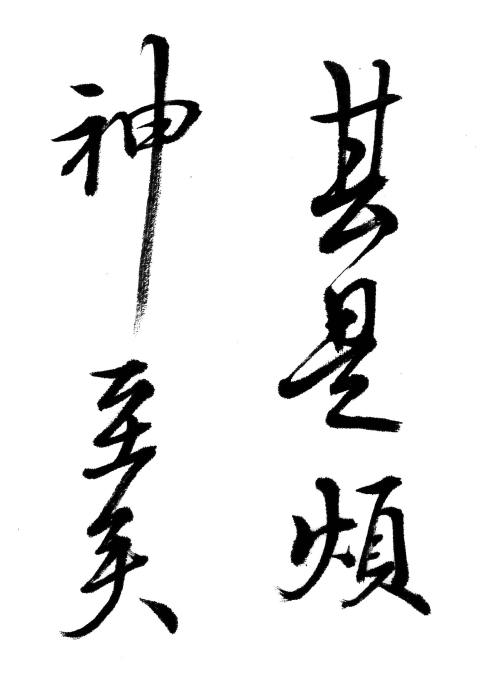 甚是煩
神至矣